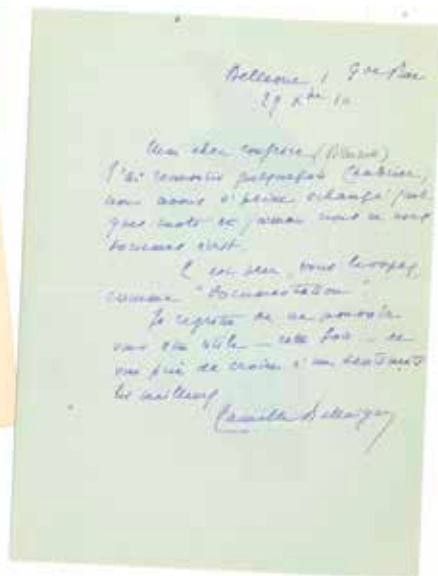 Bellevue
29 Xbre 10
Mon cher confrère
J'ai rencontré quelquefois Chabrier,
nous avons à peine échangé quel
ques mots et jamais nous ne nous
sommes écrit.
C'est peu, vous le voyez,
comme "documentation".
Je regrette de ne pouvoir
vous être utile — cette fois —
vous prie de croire à mes sentiments
les meilleurs
Camille Bellaigue